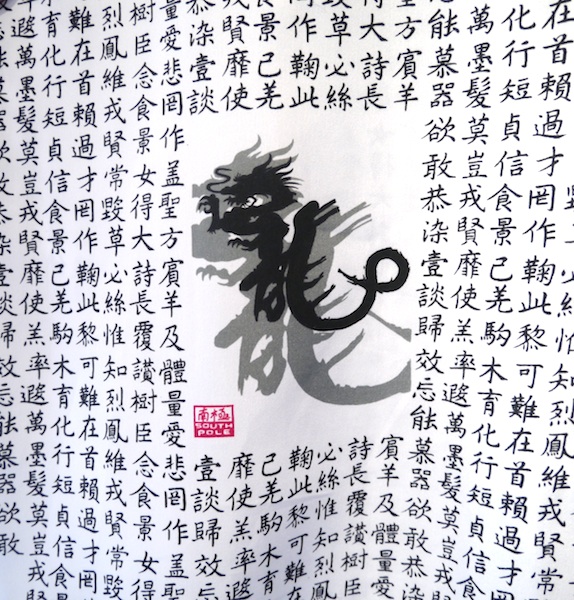 在首賴過才罔作鞠此黎可難在首賴過
化行短貞信食景已羌駒木育化行短貞信食
萬墨髮莫豈戎賢靡使羔率遐萬墨髮莫豈戎賢
能慕器欲敢恭染壹談歸效忘能慕器欲敢
方賓羊
大詩長
草必絲
作鞠此
景已羌
賢靡使
恭染壹談
龍
南極
SOUTH
POLE
賓羊及體量愛
詩長覆讚樹臣
必絲惟知烈鳳
鞠此黎可難在
已羌駒木育
靡使羔率遐
壹談歸效忘
量愛悲罔作蓋聖方賓羊及體量愛悲罔作蓋
樹臣念食景女得大詩長覆讚樹臣念食景女得
烈鳳維戎賢常毀草必絲惟知烈鳳維戎賢常毀
難在首賴過才罔作鞠此黎可難在首賴過才罔
育化行短貞信食景已羌駒木育化行短貞信食
遐萬墨髮莫豈戎賢靡使羔率遐萬墨髮莫豈戎賢